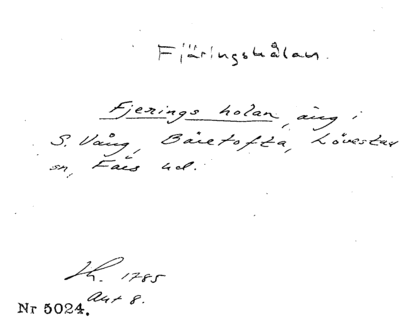 Fjäringshålan.
Fjerings holan, äng i
S. Vång, Båretofta, Lövestad
sn, Färs hd.
Lh. 1785
Akt 8.
Nr 5024.